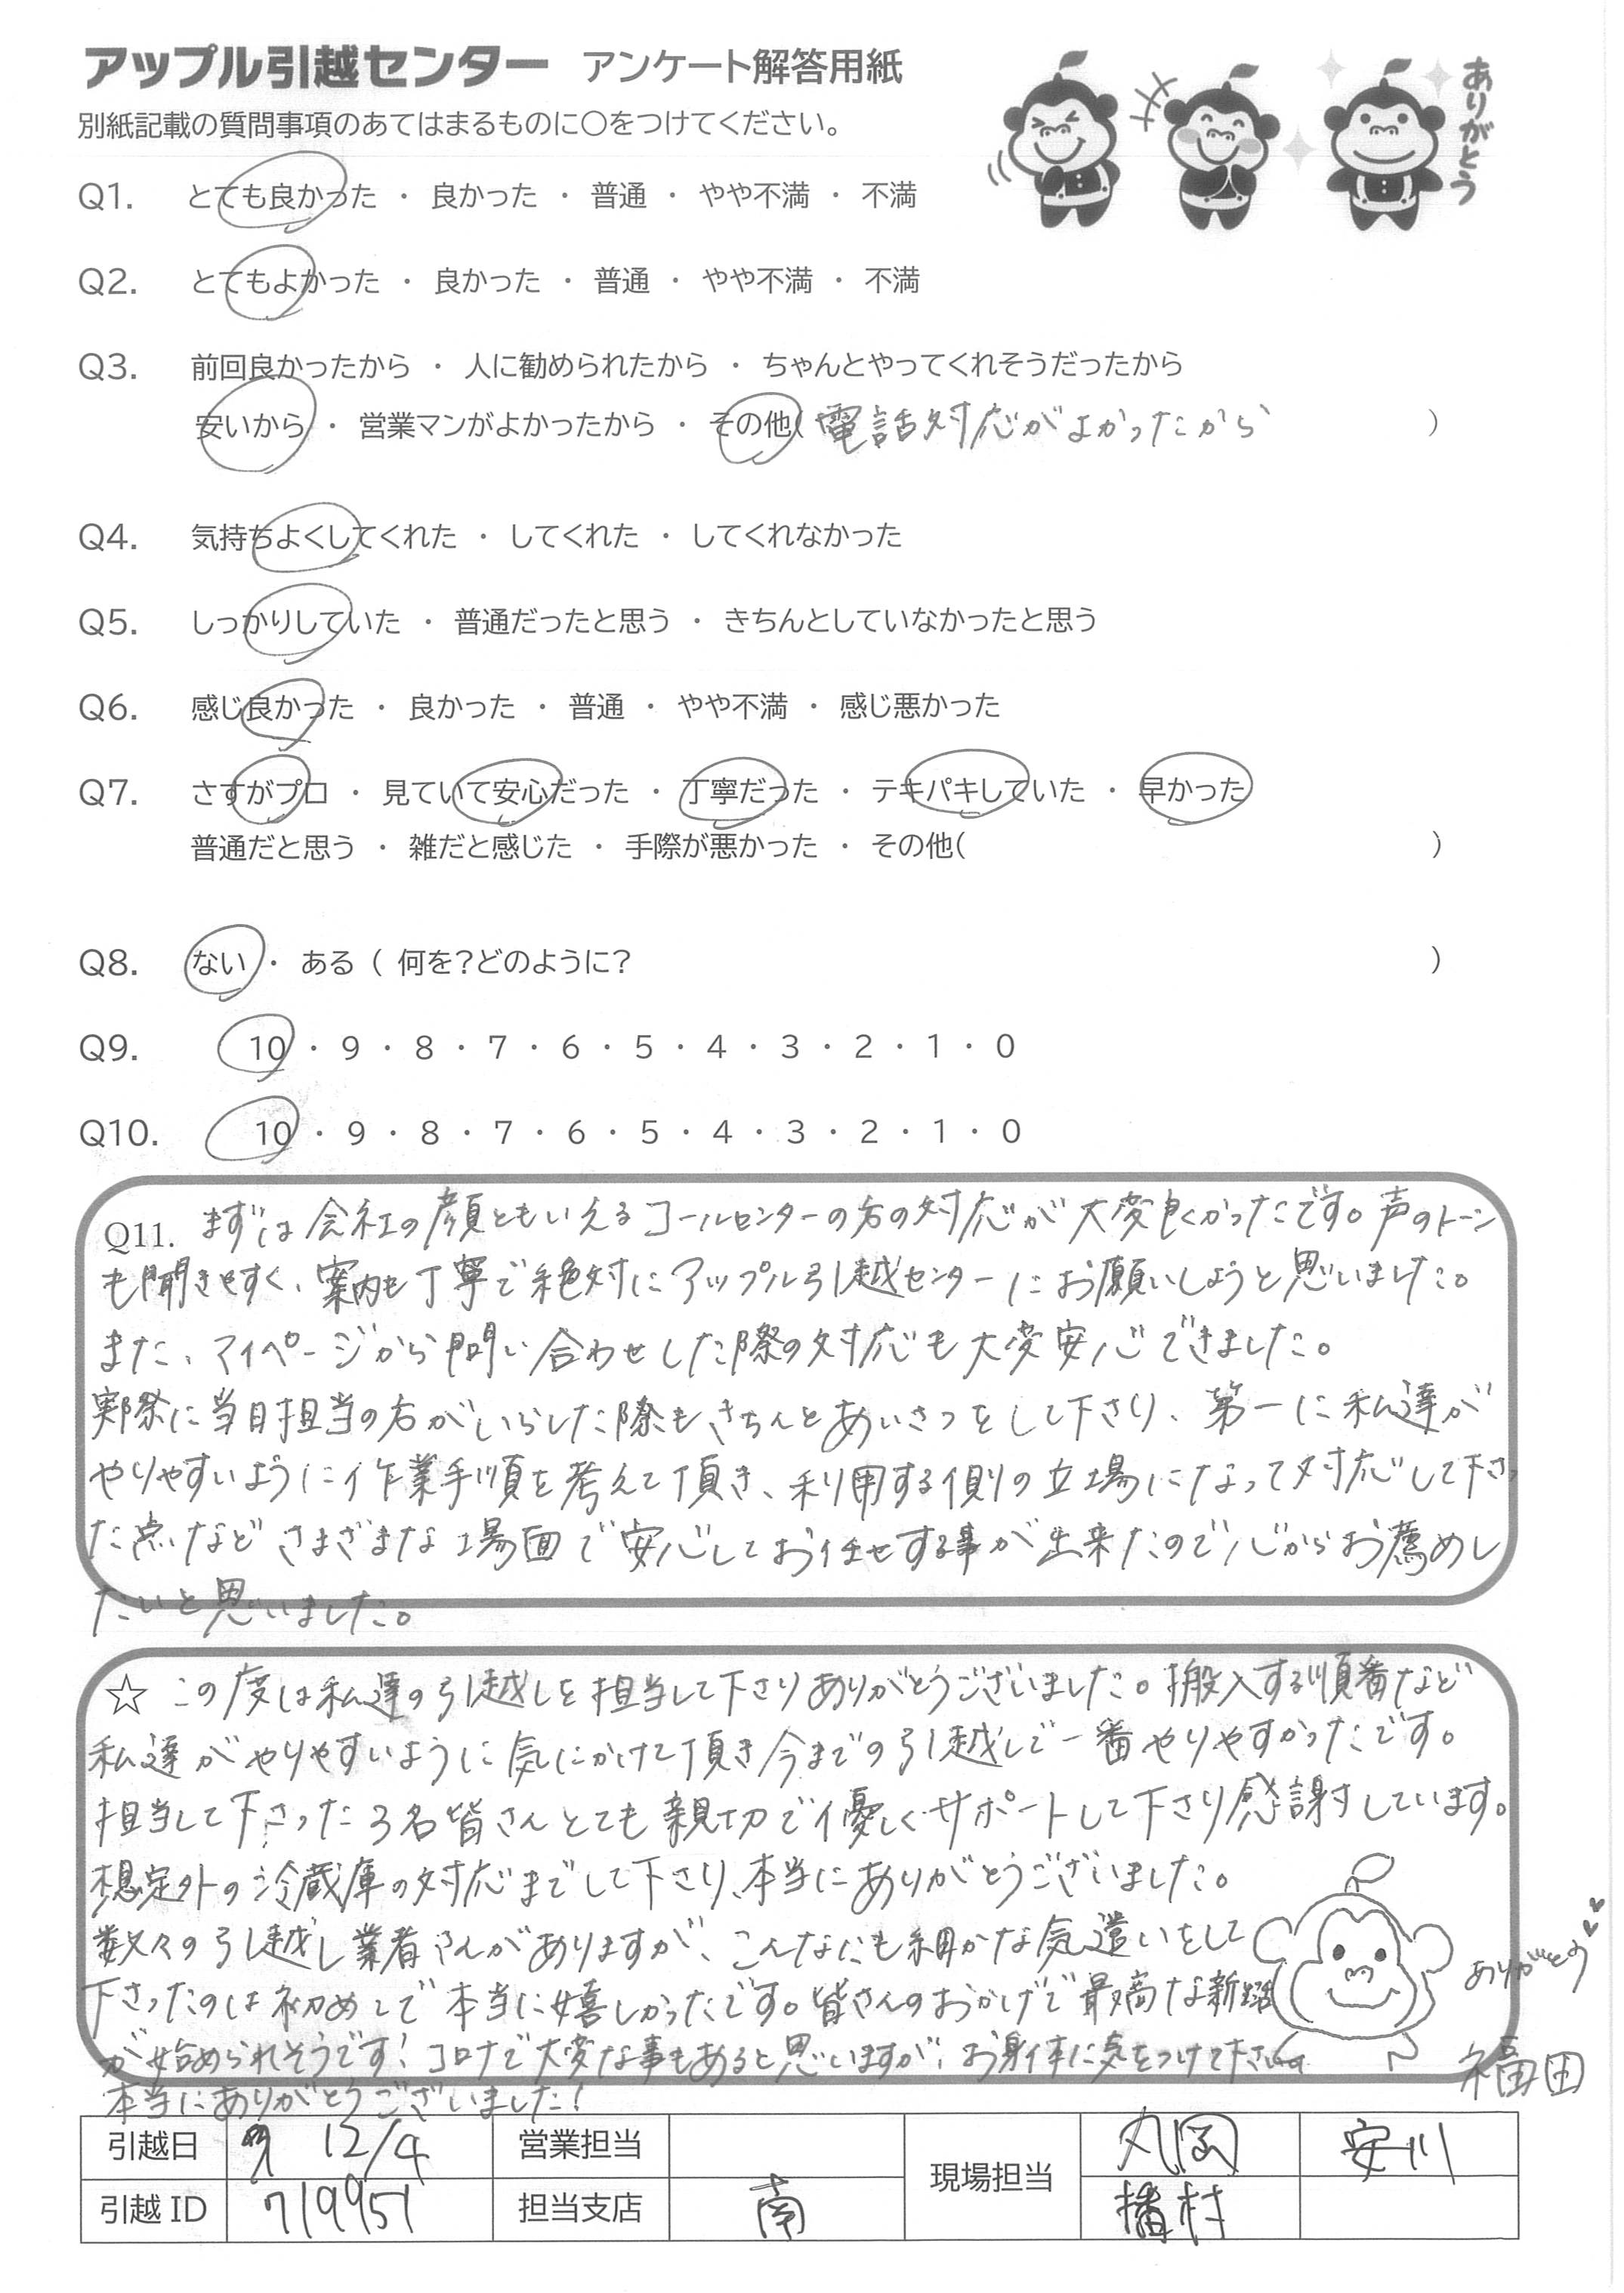 アップル引越センター アンケート解答用紙
別紙記載の質問事項のあてはまるものに○をつけてください。
ありがとう
Q1. とても良かった ・ 良かった ・ 普通 ・ やや不満 ・ 不満
Q2. とてもよかった ・ 良かった ・ 普通 ・ やや不満 ・ 不満
Q3. 前回良かったから ・ 人に勧められたから ・ ちゃんとやってくれそうだったから
安いから ・ 営業マンがよかったから ・ その他( 電話対応がよかったから )
Q4. 気持ちよくしてくれた ・ してくれた ・ してくれなかった
Q5. しっかりしていた ・ 普通だったと思う ・ きちんとしていなかったと思う
Q6. 感じ良かった ・ 良かった ・ 普通 ・ やや不満 ・ 感じ悪かった
Q7. さすがプロ ・ 見ていて安心だった ・ 丁寧だった ・ テキパキしていた ・ 早かった
普通だと思う ・ 雑だと感じた ・ 手際が悪かった ・ その他( )
Q8. ない ・ ある ( 何を?どのように? )
Q9. 10 ・ 9 ・ 8 ・ 7 ・ 6 ・ 5 ・ 4 ・ 3 ・ 2 ・ 1 ・ 0
Q10. 10 ・ 9 ・ 8 ・ 7 ・ 6 ・ 5 ・ 4 ・ 3 ・ 2 ・ 1 ・ 0
Q11. まずは会社の顔ともいえるコールセンターの方の対応が大変良くかったです。声のトーン
も聞きやすく、案内も丁寧で絶対にアップル引越センターにお願いしようと思いました。
また、マイページから問い合わせした際の対応も大変安心できました。
実際に当日担当の方がいらした際もきちんとあいさつをして下さり、第一に私達が
やりやすいように作業手順を考えて頂き、利用する側の立場になって対応して下さっ
た点などさまざまな場面で安心してお任せする事が出来たので心からお薦めし
たいと思いました。
☆ この度は私達の引越しを担当して下さりありがとうございました。搬入する順番など
私達がやりやすいように気にかけて頂き今までの引越しで一番やりやすかったです。
担当して下さった3名皆さんとても親切で優しくサポートして下さり感謝しています。
想定外の冷蔵庫の対応までして下さり、本当にありがとうございました。
数々の引越し業者さんがありますが、こんなにも細かな気遣いをして
下さったのは初めてで本当に嬉しかったです。皆さんのおかげで最高な新
ありがとう
が始められそうです!コロナで大変な事もあると思いますが、お身体に気をつけて下さい。
福田
本当にありがとうございました!
引越日 12/4 営業担当 現場担当 丸岡 安川
引越ID 719951 担当支店 南 播村